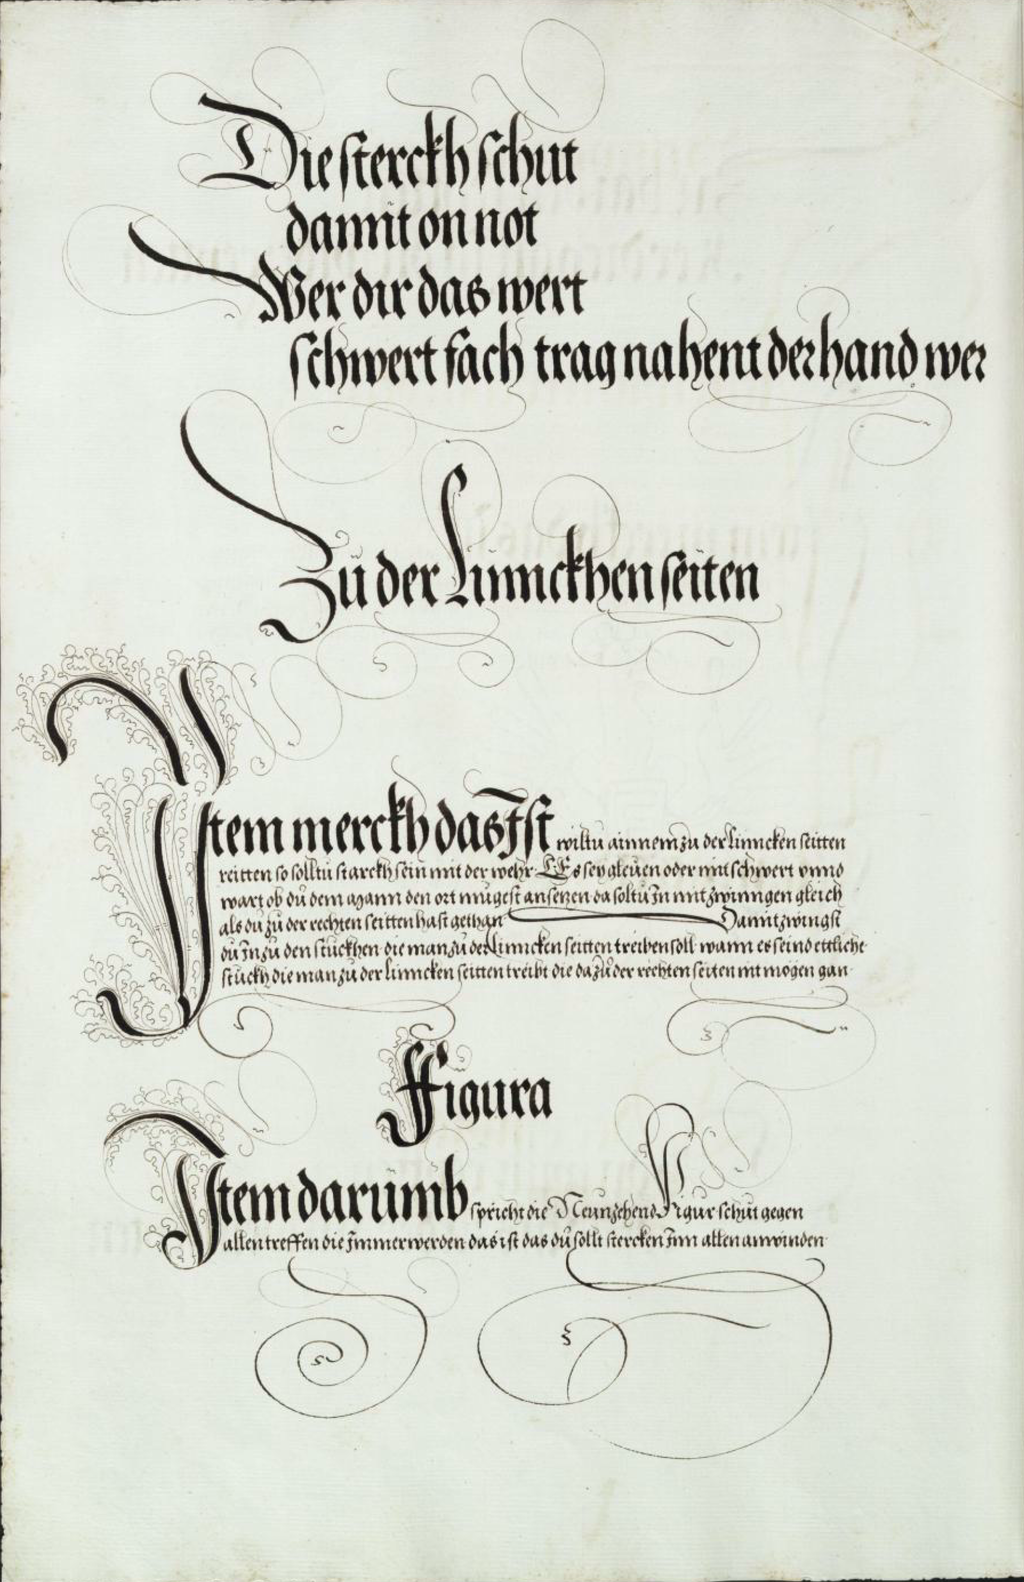 Die sterckh schut
damit on not
Wer dir das wert
schwert fach trag nahent der hand wer
Zü der Linnckhen seiten
Item merckh das Ist wiltu ainnem zu der linncken seitten
reitten so solltu starckh sein mit der wehr Es sey gleuen oder mit schwert vnnd
wart ob dü dem mann den ort mügest ansetzen da soltu In mit zwinngen gleich
als dü zü der rechten seitten hast gethan Damit zwingst
dü In zü den stückhen die man zü der Linncken seitten treiben soll wann es seind ettliche
stückh die man zu der linncken seitten treibt die da zů der rechten seiten nit mögen gan
Ffigura
Item darümb spricht die Neunzehend Figur schüt gegen
allen treffen die Immer werden das ist das dü sollt stercken Inn allen anwinden